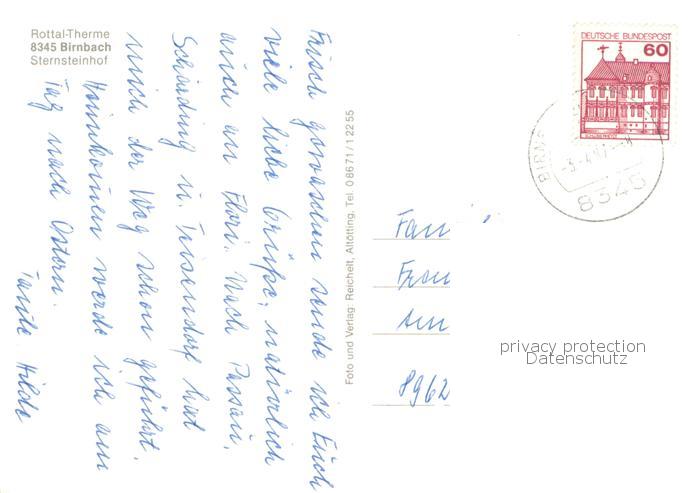 Rottal-Therme
8345 Birnbach
Sternsteinhof
Frisch gewaschen sende ich Euch
viele liebe Grüße, natürlich
auch an Flori. Nach Passau,
Schärding u. Teisendorf hat
mich der Weg schon geführt.
Heimkommen werde ich am
Tag nach Ostern.
Tante Hilde
Foto und Verlag: Reichelt, Altötting, Tel. 0 86 71 / 1 22 55
DEUTSCHE BUNDESPOST
60
8345
Fam
Am
8962
privacy protection
Datenschutz